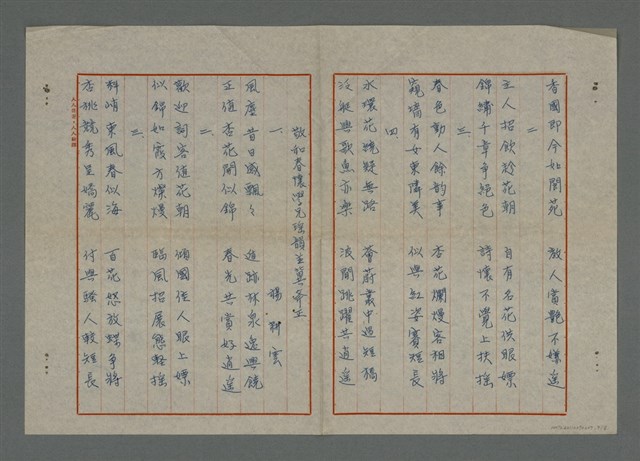 香國即今如閬苑　敲人賞艷不嫌遙
二
主人招飲趁花朝　自有名花供眼嫖
錦繡千章爭絕色　詩懷不覺上扶搖
三
春色動人餘韵事　杏花爛熳客相將
窺墻有女東隣美　似與紅姿賽短長
四
水環花塢疑無路　薈蔚叢中過短橋
泛艇興歌魚亦樂　浪間跳躍共逍遙
敬和春懷學兄瑤韻並冀斧正
楊耕雲
一
風度昔日感飄々　追跡林泉逸興饒
正值杏花開似錦　春光共賞好逍遙
二
歡迎詞客值花朝　傾國佳人眼上嫖
似錦如霞方燦爛　臨風招展態輕搖
三
料峭東風春似海　百花怒放蝶爭將
杏桃競秀呈嬌麗　付與騷人較短長